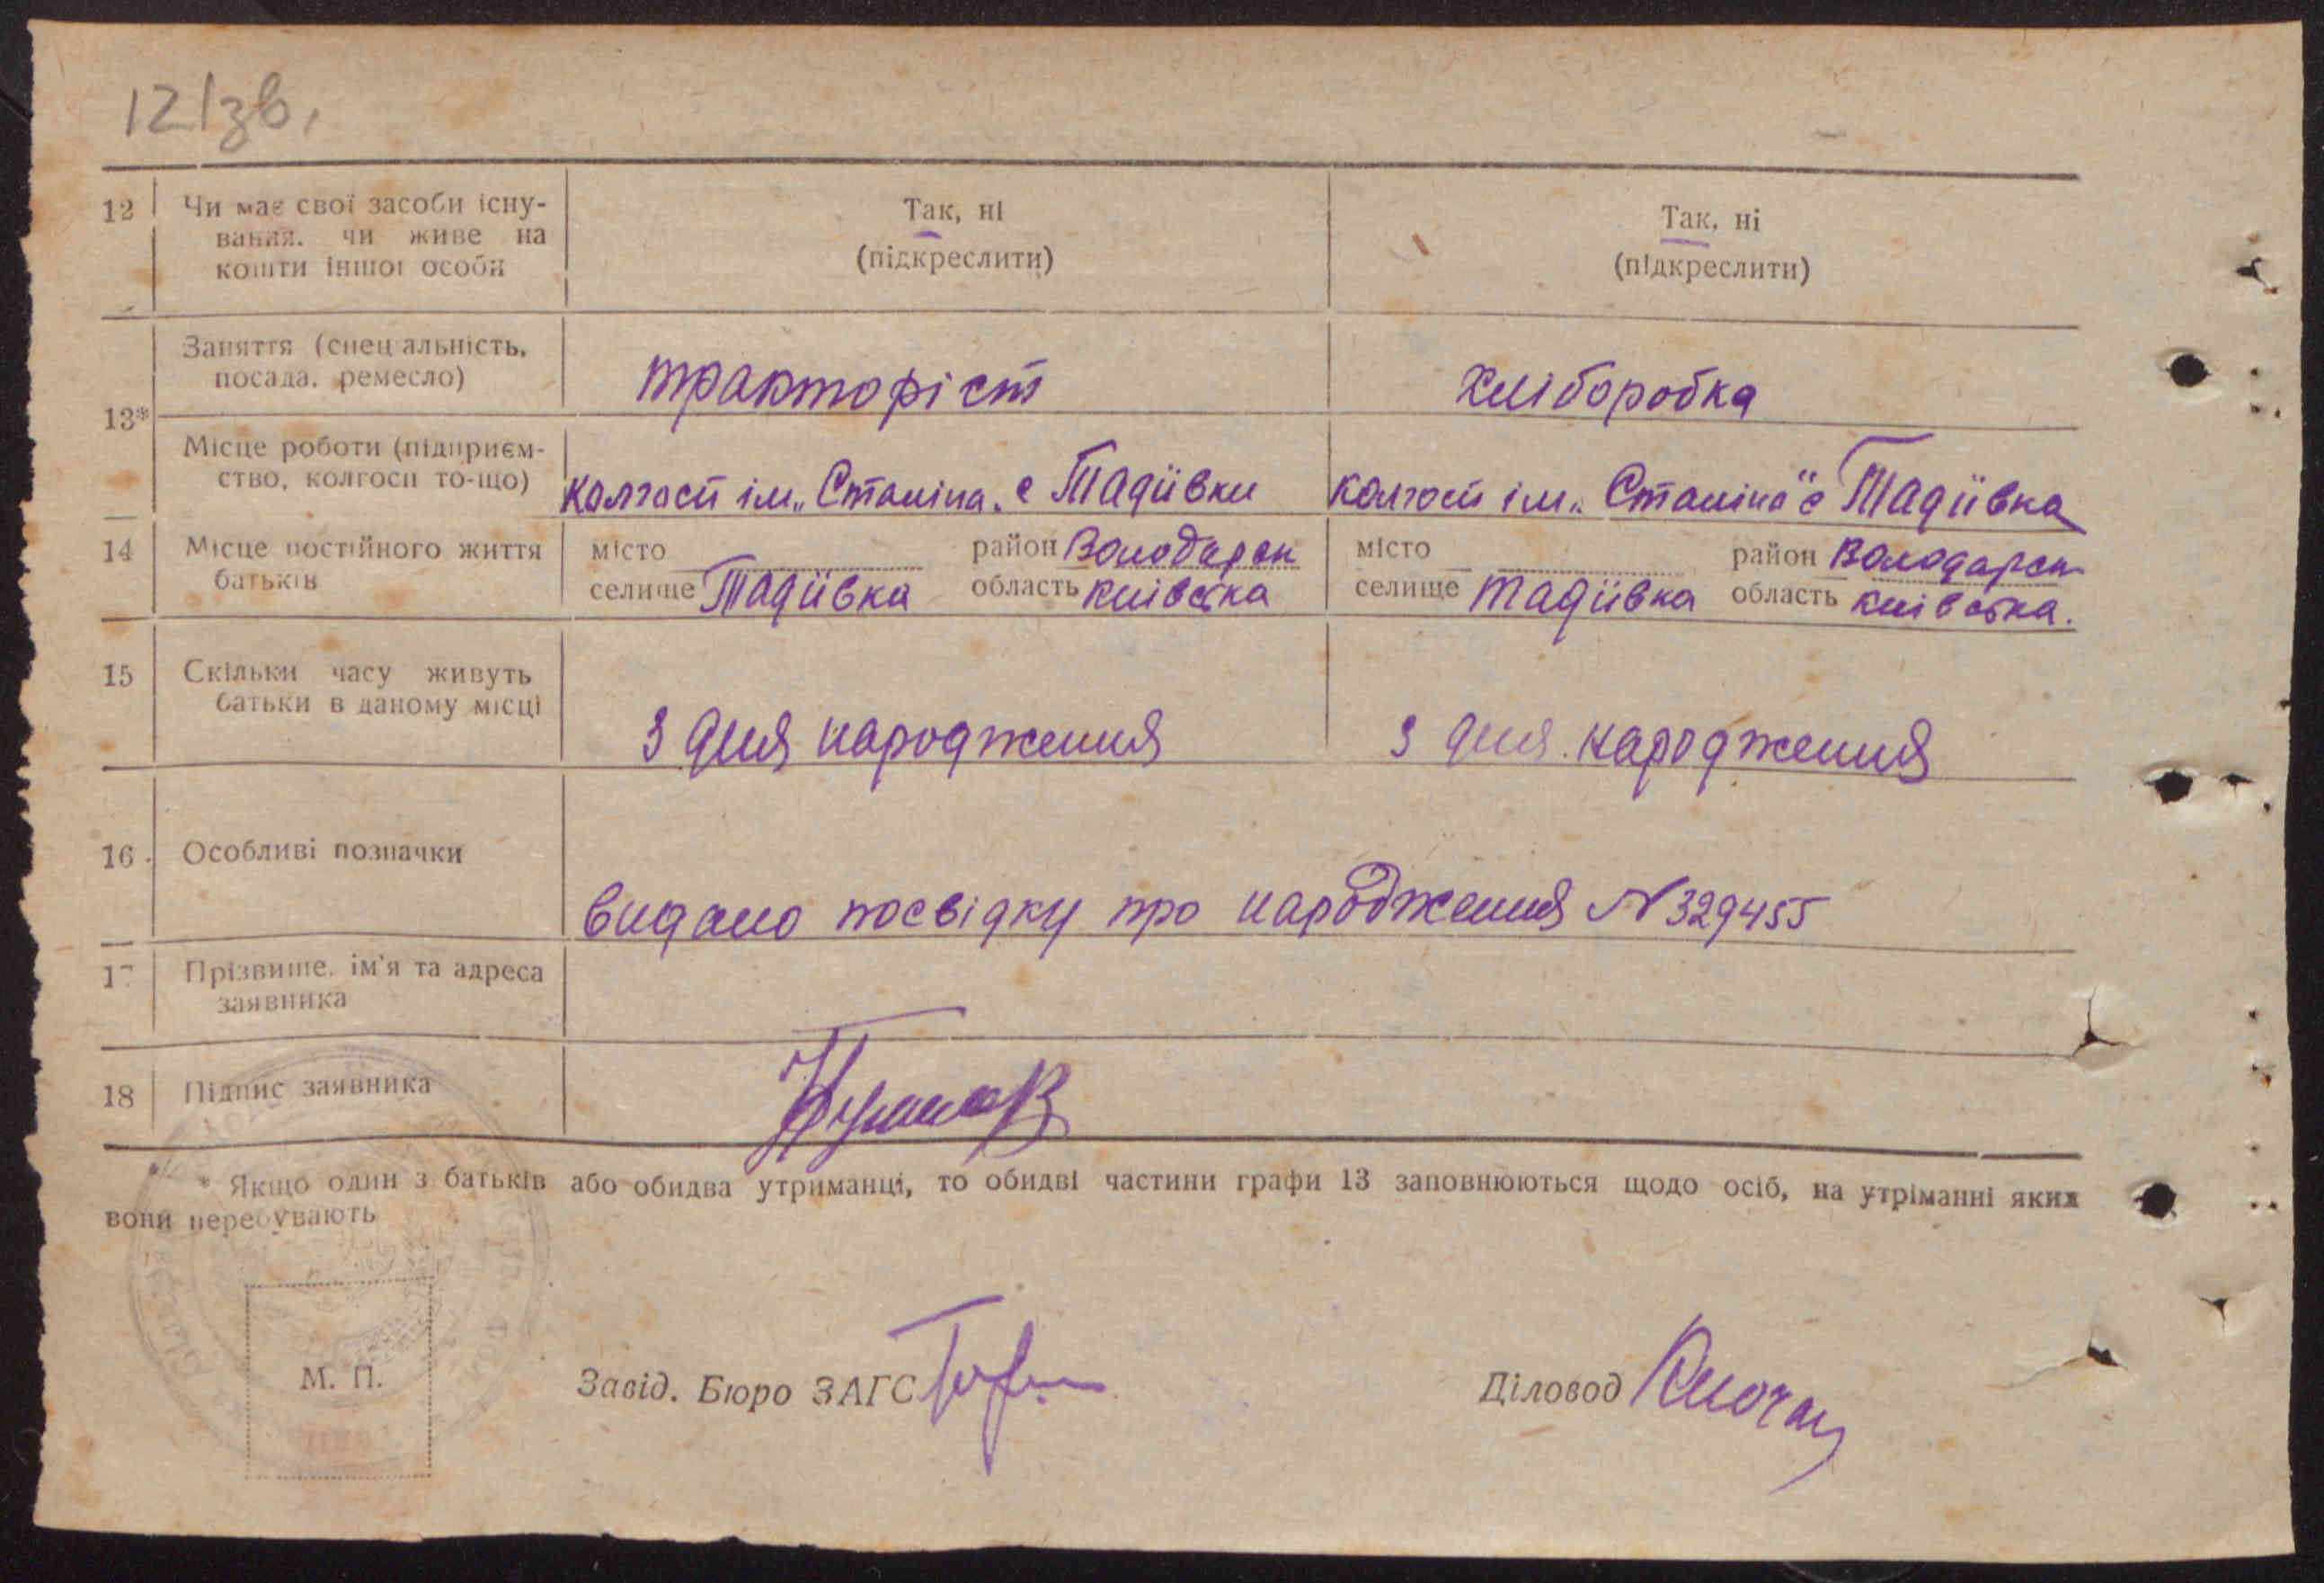 121зв.
12 Чи має свої засоби існу-
вання. чи живе на
кошти іншої особи
Так, ні
(підкреслити)
Так, ні
(підкреслити)
13*
Заняття (спеціальність,
посада, ремесло)
тракторіст
хліборобка
Місце роботи (підприєм-
ство, колгосп то-що)
колгосп ім. „Сталіна" с Тадіївки
колгосп ім. „Сталіна" с Тадіївка
14 Місце постійного життя
батьків
місто район Володарськ
селище Тадіївка область київська
місто район Володарськ
селище Тадіївка область київська.
15 Скільки часу живуть
батьки в даному місці
З дня народження
З дня народження
16 Особливі позначки
видано посвідку про народження N 329455
17 Прізвище, ім'я та адреса
заявника
18 Підпис заявника
* Якщо один з батьків або обидва утриманці, то обидві частини графи 13 заповнюються щодо осіб, на утріманні яких
вони перебувають
М. П.
Завід. Бюро ЗАГС
Діловод